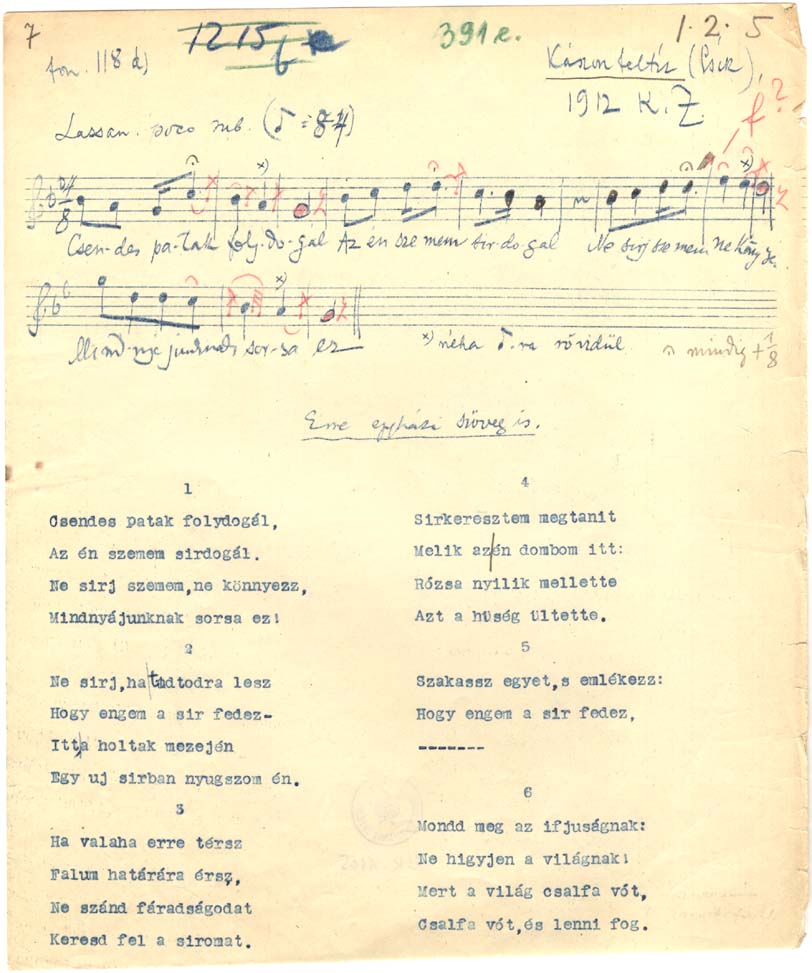 7
1215
6
391e.
1. 2. 5
fon. 118 d)
Kászonfeltíz (Csík),
1912 K. Z.
f?
Lassan. poco rub. (
x) x)
4
8
Csen-des pa-tak foly-do-gál Az én sze mem sir-do gál Ne sirj szemem ne köny
x)
Mind-nyá junknak sor-sa ez
x) néha ♪-ra rövidül. mindig + 1/8
Erre egyházi szöveg is.
1
Csendes patak folydogál,
Az én szemem sirdogál.
Ne sirj szemem,ne könnyezz,
Mindnyájunknak sorsa ez!
2
Ne sirj,ha tudtodra lesz
Hogy engem a sir fedez-
Itt a holtak mezején
Egy uj sirban nyugszom én.
3
Ha valaha erre térsz
Falum határára érsz,
Ne szánd fáradságodat
Keresd fel a siromat.
4
Sirkeresztem megtanit
Melik az én dombom itt:
Rózsa nyilik mellette
Azt a hüség ültette.
5
Szakassz egyet,s emlékezz:
Hogy engem a sir fedez,
-------
6
Mondd meg az ifjuságnak:
Ne higyjen a világnak!
Mert a világ csalfa vót,
Csalfa vót,és lenni fog.